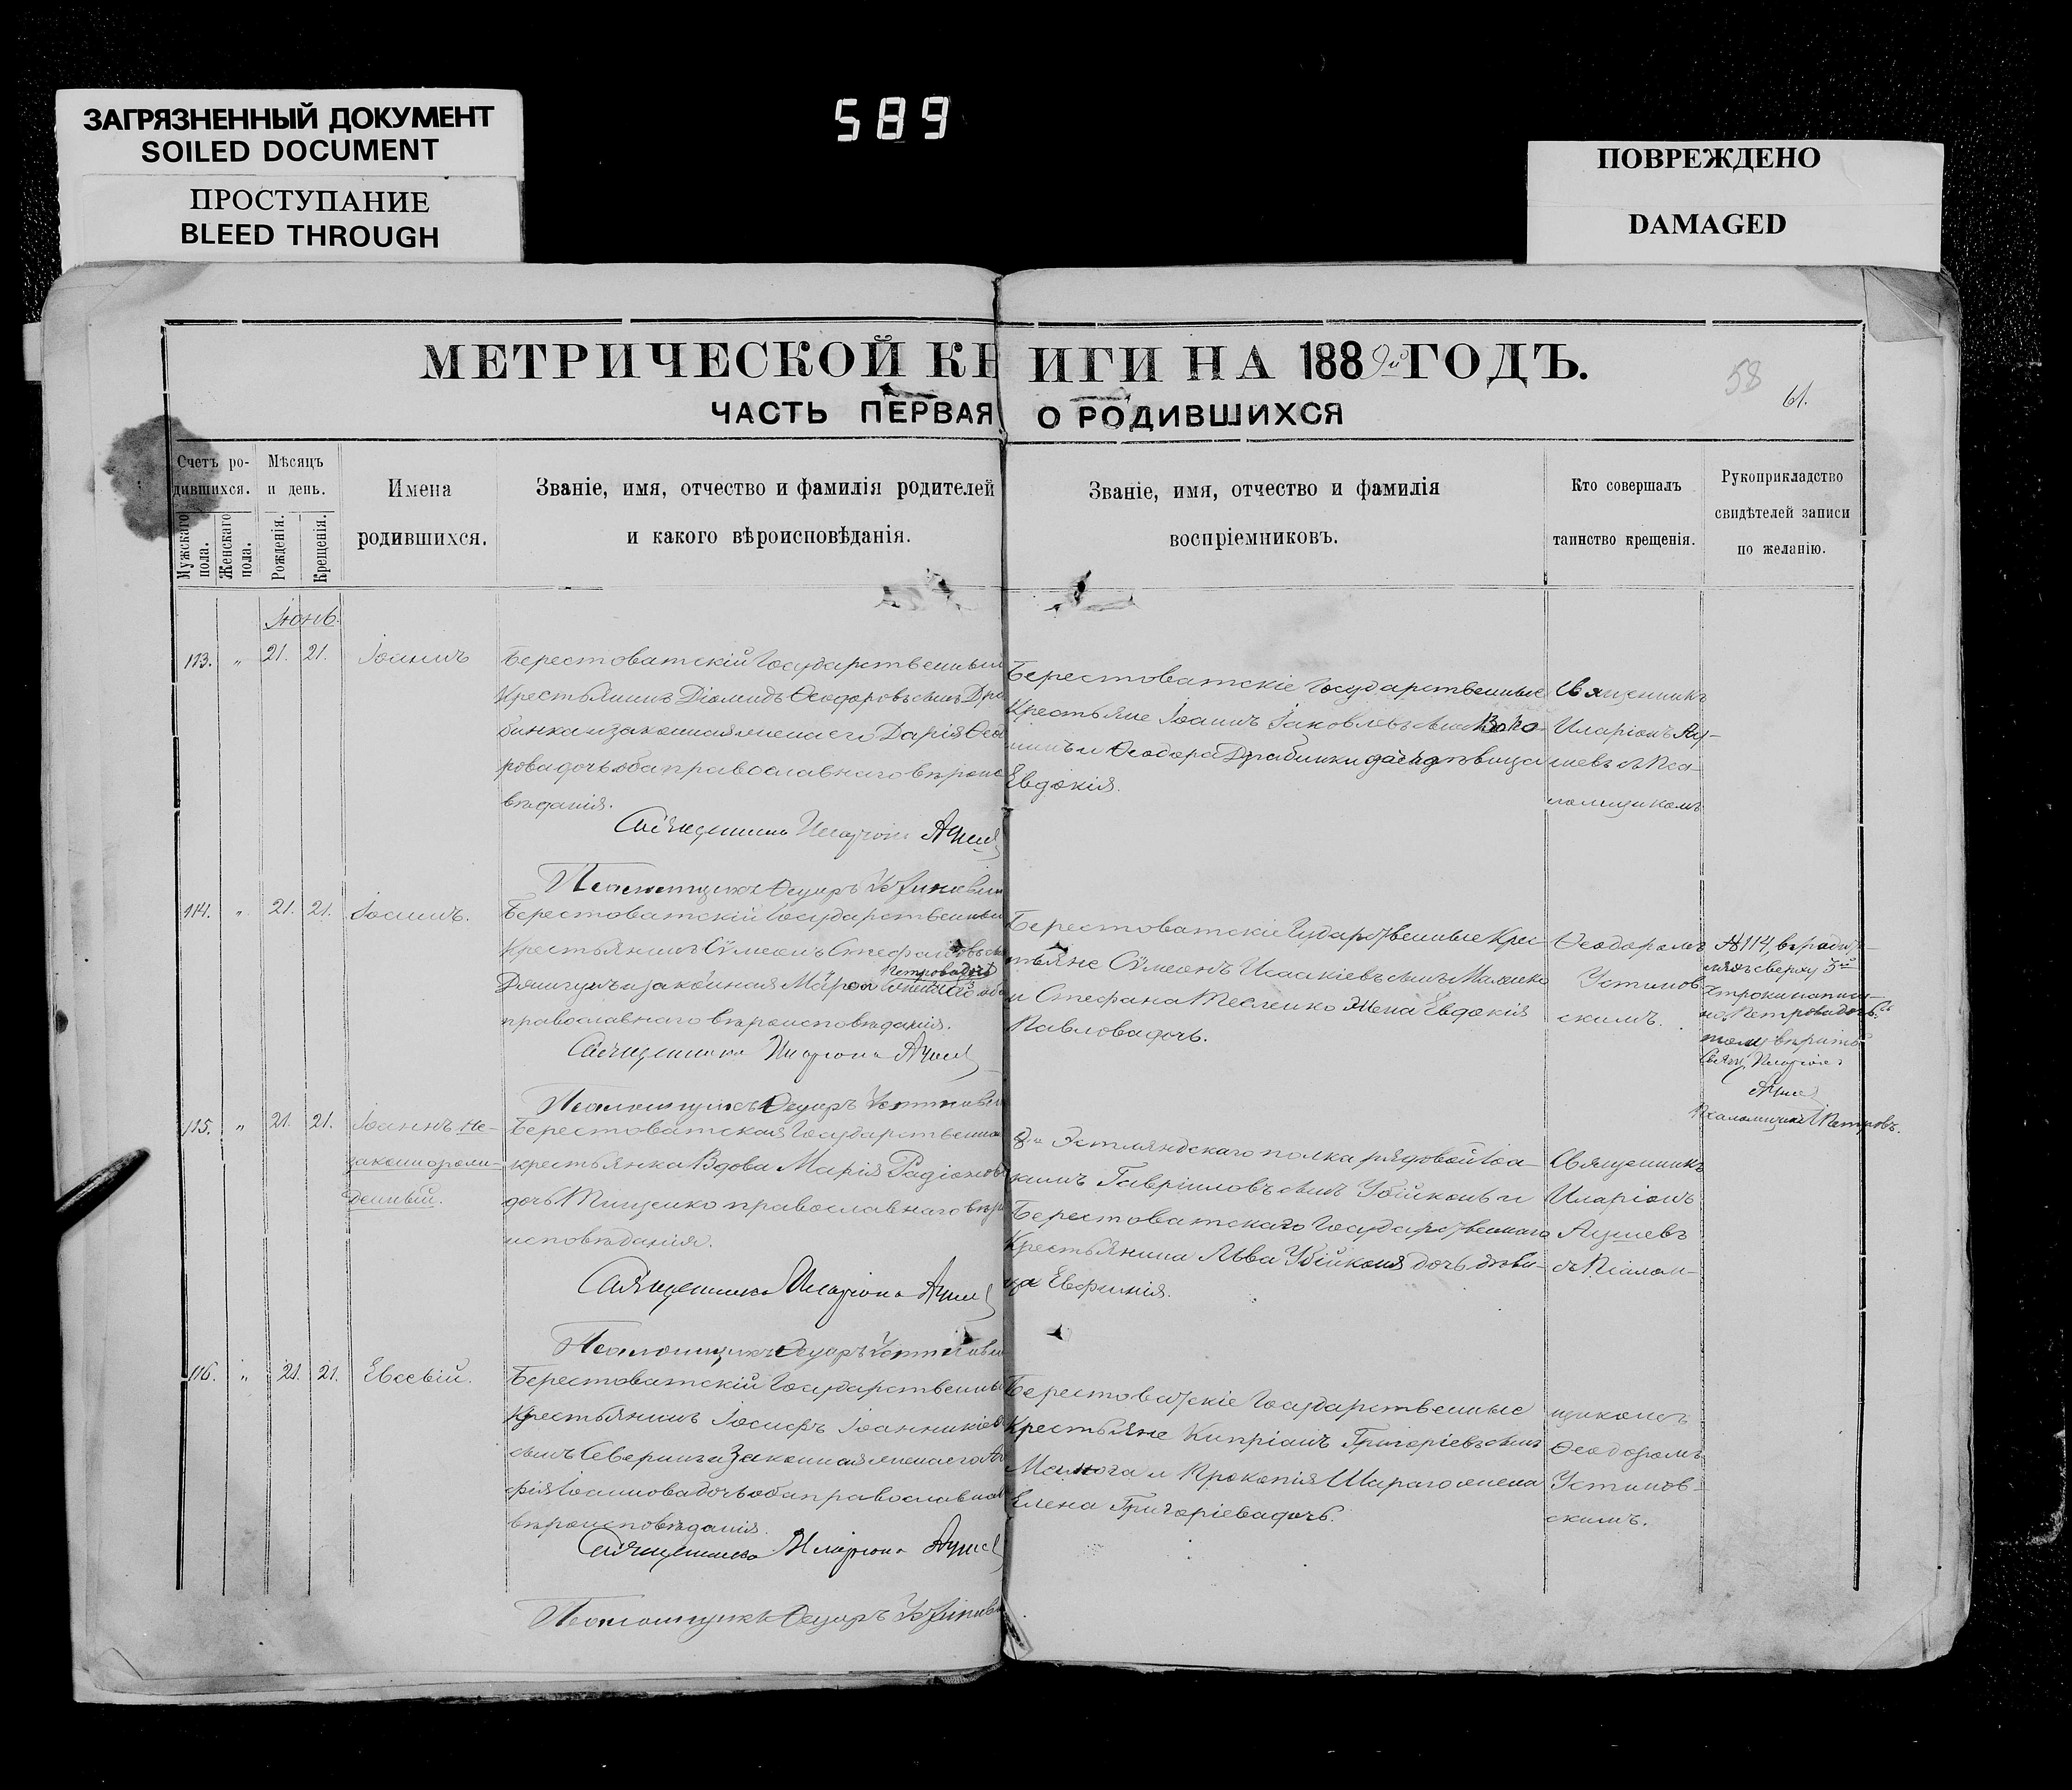 ЗАГРЯЗНЕННЫЙ ДОКУМЕНТ
SOILED DOCUMENT
ПРОСТУПАНИЕ
BLEED THROUGH
589
ПОВРЕЖДЕНО
DAMAGED
МЕТРИЧЕСКОЙ КН
ИГИ НА 1889й ГОДЪ.
ЧАСТЬ ПЕРВАЯ
О РОДИВШИХСЯ
58
61.
Счетъ ро-
дившихся.
Мужскаго пола.
Женскаго пола.
Мѣсяцъ
и день.
Рожденія.
Крещенія.
Имена
родившихся.
Званіе, имя, отчество и фамилія родителей
и какого вѣроисповѣданія.
Званіе, имя, отчество и фамилія
воспріемниковъ.
Кто совершалъ
таинство крещенія.
Рукоприкладство
свидѣтелей записи
по желанію.
Іюнь.
113. " 21. 21. Іоаннъ
Берестоватскій Государственный
Крестьянинъ Діомидъ Ѳеодоровъ сынъ Дра
бинка и законная жена его Дарія Ѳеодо
рова дочь оба православнаго вѣроис
вѣданія.
Священникъ Иларіонъ
Псаломщикъ Ѳеодоръ
Берестоватскіе Государственные
Крестьяне Іоаннъ Іаковлевъ сынъ
и Ѳеодора Драбинки дочь дѣвица
Евдокія.
Священникъ
Иларіонъ
съ Пса-
ломщикомъ
114. " 21. 21. Іоаннъ.
Берестоватскій Государственный
Крестьянинъ Сѵмеонъ Стефановъ сынъ
Петрова дочь
и законная Марѳа оба
православнаго вѣроисповѣданія.
Священникъ Иларіонъ
Псаломщикъ Ѳеодоръ
Берестоватскіе Государственные Крес
тьяне Сѵмеонъ Исаакіевъ сынъ
и Стефана жена Евдокія
Павлова дочь.
Ѳеодоромъ
Устинов
скимъ.
№ 114, въ
сверху 3й
строки написа-
но, Петрова дочь
тому вѣрить
Свящ. Иларіонъ
Псаломщикъ Петровъ.
115. " 21. 21. Іоаннъ Не-
законнорож-
денный.
Берестоватская Государственная
крестьянка Вдова Марія Радіонова
дочь Тищенко православнаго вѣро
исповѣданія.
Священникъ Иларіонъ
Псаломщикъ Ѳеодоръ
8й Эстляндскаго полка рядовой Іоа-
кимъ Гавріиловъ сынъ Убійконь и
Берестоватскаго Государственнаго
Крестьянина Льва Убійконя дочь дѣви-
ца Евфимія.
Священникъ
Иларіонъ
съ Псалом-
116. " 21. 21. Евсевій.
Берестоватскій Государственный
Крестьянинъ Іосифъ Іоанникіевъ
сынъ Северинъ и Законная жена его
фія Іоаннова дочь оба православнаго
вѣроисповѣданія.
Священникъ Иларіонъ
Псаломщикъ Ѳеодоръ
Берестоватскіе Государственные
Крестьяне Кипріанъ Григоріевъ сынъ
и Прокопія Шараго жена
Елена Григоріева дочь.
щикомъ
Ѳеодоромъ
Устинов-
скимъ.